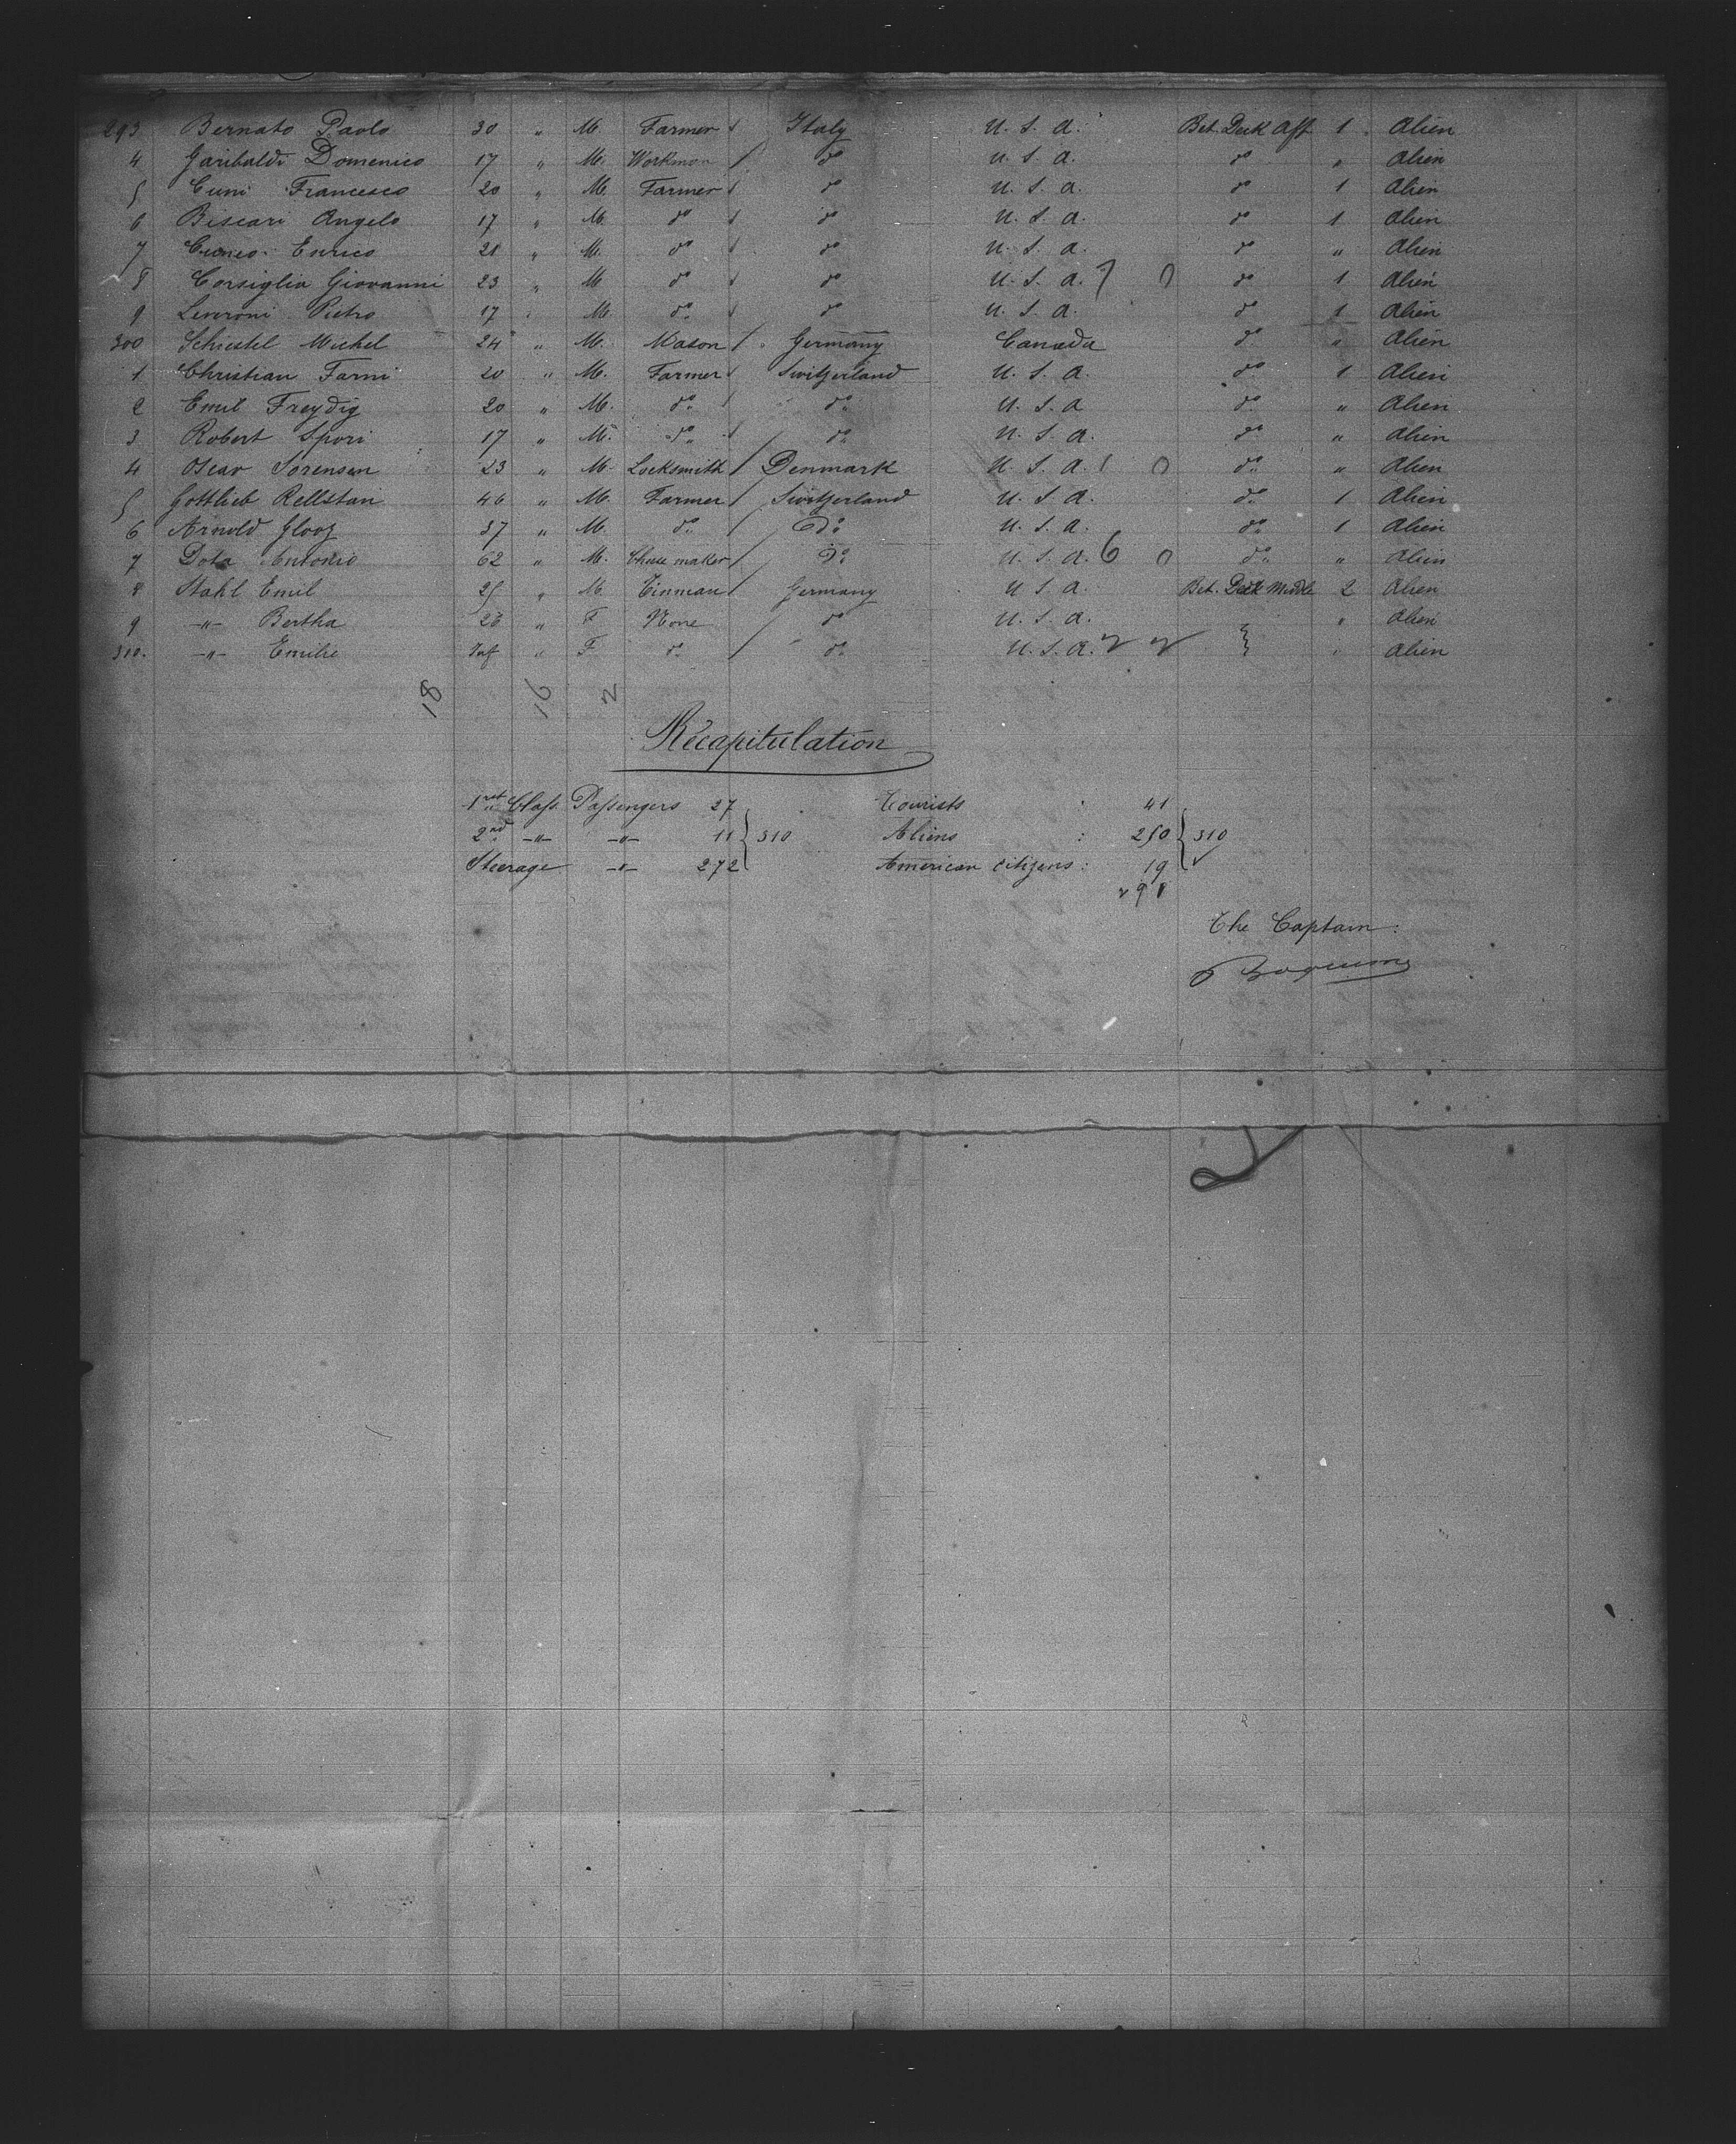 293 Bernato Paolo 30 " M. Farmer / Italy U. S. A. Bet. Deck Aft 1 Alien
4 Garibaldi Domenico 17 " M. Workman / do U. S. A. do " Alien
5 Cuni Francesco 20 " M. Farmer / do U. S. A. do 1 Alien
6 Biscari Angelo 17 " M. do / do U. S. A. do 1 Alien
7 Cuneo Enrico 21 " M. do / do U. S. A. do " Alien
8 Corsiglia Giovanni 23 " M do / do U. S. A. 7 0 do 1 Alien
9 Leveroni Pietro 17 " M. do / do U. S. A. do 1 Alien
300 Schiestel Michel 24 " M. Mason / Germany Canada do " Alien
1 Christian Farni 20 " M. Farmer / Switzerland U. S. A. do 1 Alien
2 Emil Freydig 20 " M. do / do U. S. A do " Alien
3 Robert Spori 17 " M. do / do U. S. A. do " Alien
4 Oscar Sorensen 23 " M. Locksmith / Denmark U. S. A. 1 0 do " Alien
5 Gottlieb Rellstan 46 " M. Farmer / Switzerland U. S. A. do 1 Alien
6 Arnold Glooz 37 " M. do / Do U. S. A. do 1 Alien
7 Dota Antonio 62 " M. maker / Do U. S. A. 6 0 do " Alien
8 Stahl Emil 25 " M. Tinman / Germany U. S. A. Bet. Deck Middle 2 Alien
9 -"- Bertha 23 " F None / do U. S. A. " Alien
310. -"- Emilie Inf " F do / do U. S. A. 2 2 " Alien
18 16 2
Recapitulation
1rst Class Passengers 27 Tourists : 41
2nd -"- -"- 11 } 310 Aliens : 250 } 310
Steerage -"- 272 American citizens : 19 ✓
291
The Captain :